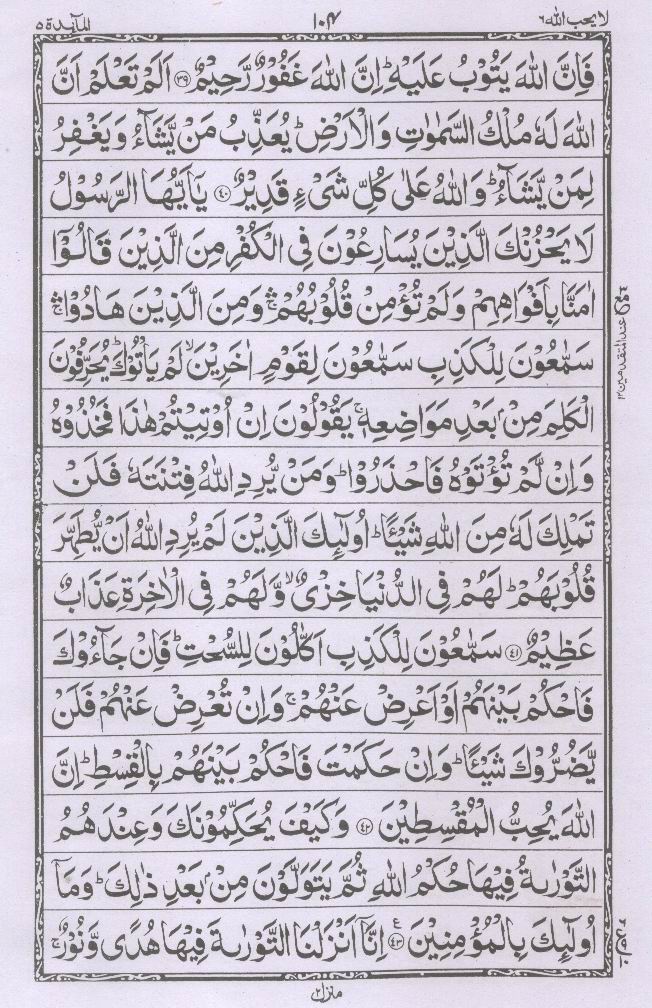 لا يحب الله ٦
١٠٤
المآئدة ٥
فَاِنَّ اللّٰهَ يَتُوْبُ عَلَيْهِ ؕ اِنَّ اللّٰهَ غَفُوْرٌ رَّحِيْمٌ ﴿۳۹﴾ اَلَمْ تَعْلَمْ اَنَّ
اللّٰهَ لَهٗ مُلْكُ السَّمٰوٰتِ وَالْاَرْضِ ؕ يُعَذِّبُ مَنْ يَّشَآءُ وَيَغْفِرُ
لِمَنْ يَّشَآءُ ؕ وَاللّٰهُ عَلٰى كُلِّ شَىْءٍ قَدِيْرٌ ﴿۴۰﴾ يٰۤاَيُّهَا الرَّسُوْلُ
لَا يَحْزُنْكَ الَّذِيْنَ يُسَارِعُوْنَ فِى الْكُفْرِ مِنَ الَّذِيْنَ قَالُوْۤا
اٰمَنَّا بِاَفْوَاهِهِمْ وَلَمْ تُؤْمِنْ قُلُوْبُهُمْ ۛۚ وَمِنَ الَّذِيْنَ هَادُوْا ۛۚ
سَمّٰعُوْنَ لِلْكَذِبِ سَمّٰعُوْنَ لِقَوْمٍ اٰخَرِيْنَ ۙ لَمْ يَاْتُوْكَ ؕ يُحَرِّفُوْنَ
الْكَلِمَ مِنْۢ بَعْدِ مَوَاضِعِهٖ ۚ يَقُوْلُوْنَ اِنْ اُوْتِيْتُمْ هٰذَا فَخُذُوْهُ
وَاِنْ لَّمْ تُؤْتَوْهُ فَاحْذَرُوْا ؕ وَمَنْ يُّرِدِ اللّٰهُ فِتْنَتَهٗ فَلَنْ
تَمْلِكَ لَهٗ مِنَ اللّٰهِ شَيْـًٔا ؕ اُولٰٓئِكَ الَّذِيْنَ لَمْ يُرِدِ اللّٰهُ اَنْ يُّطَهِّرَ
قُلُوْبَهُمْ ؕ لَهُمْ فِى الدُّنْيَا خِزْىٌ ۙ وَّلَهُمْ فِى الْاٰخِرَةِ عَذَابٌ
عَظِيْمٌ ﴿۴۱﴾ سَمّٰعُوْنَ لِلْكَذِبِ اَكّٰلُوْنَ لِلسُّحْتِ ؕ فَاِنْ جَآءُوْكَ
فَاحْكُمْ بَيْنَهُمْ اَوْ اَعْرِضْ عَنْهُمْ ۚ وَاِنْ تُعْرِضْ عَنْهُمْ فَلَنْ
يَّضُرُّوْكَ شَيْـًٔا ؕ وَاِنْ حَكَمْتَ فَاحْكُمْ بَيْنَهُمْ بِالْقِسْطِ ؕ اِنَّ
اللّٰهَ يُحِبُّ الْمُقْسِطِيْنَ ﴿۴۲﴾ وَكَيْفَ يُحَكِّمُوْنَكَ وَعِنْدَهُمُ
التَّوْرٰىةُ فِيْهَا حُكْمُ اللّٰهِ ثُمَّ يَتَوَلَّوْنَ مِنْۢ بَعْدِ ذٰلِكَ ؕ وَمَاۤ
اُولٰٓئِكَ بِالْمُؤْمِنِيْنَ ﴿۴۳﴾ ع اِنَّاۤ اَنْزَلْنَا التَّوْرٰىةَ فِيْهَا هُدًى وَّنُوْرٌ ۚ
عند المتقدمين ١٢
منزل ٢